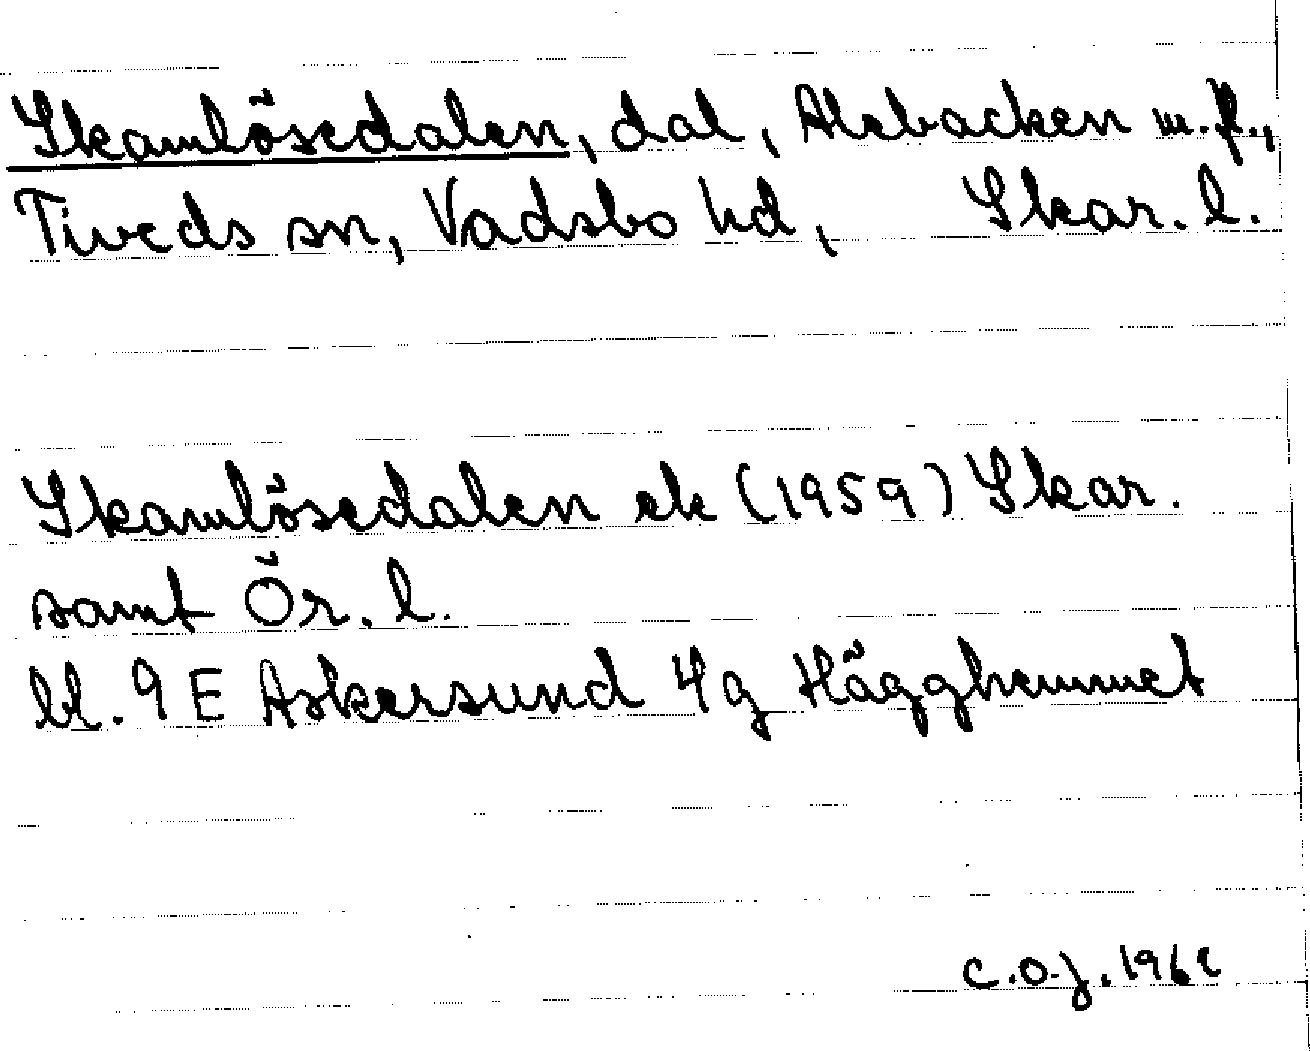 Skamlösedalen, dal, Alebacken m.fl.,
Tiveds sn, Vadsbo hd, Skar. l.
Skamlösedalen ek (1959) Skar.
samt Ör. l.
bl. 9 E Askersund 4g Hägghemmet
C.O.J. 1962